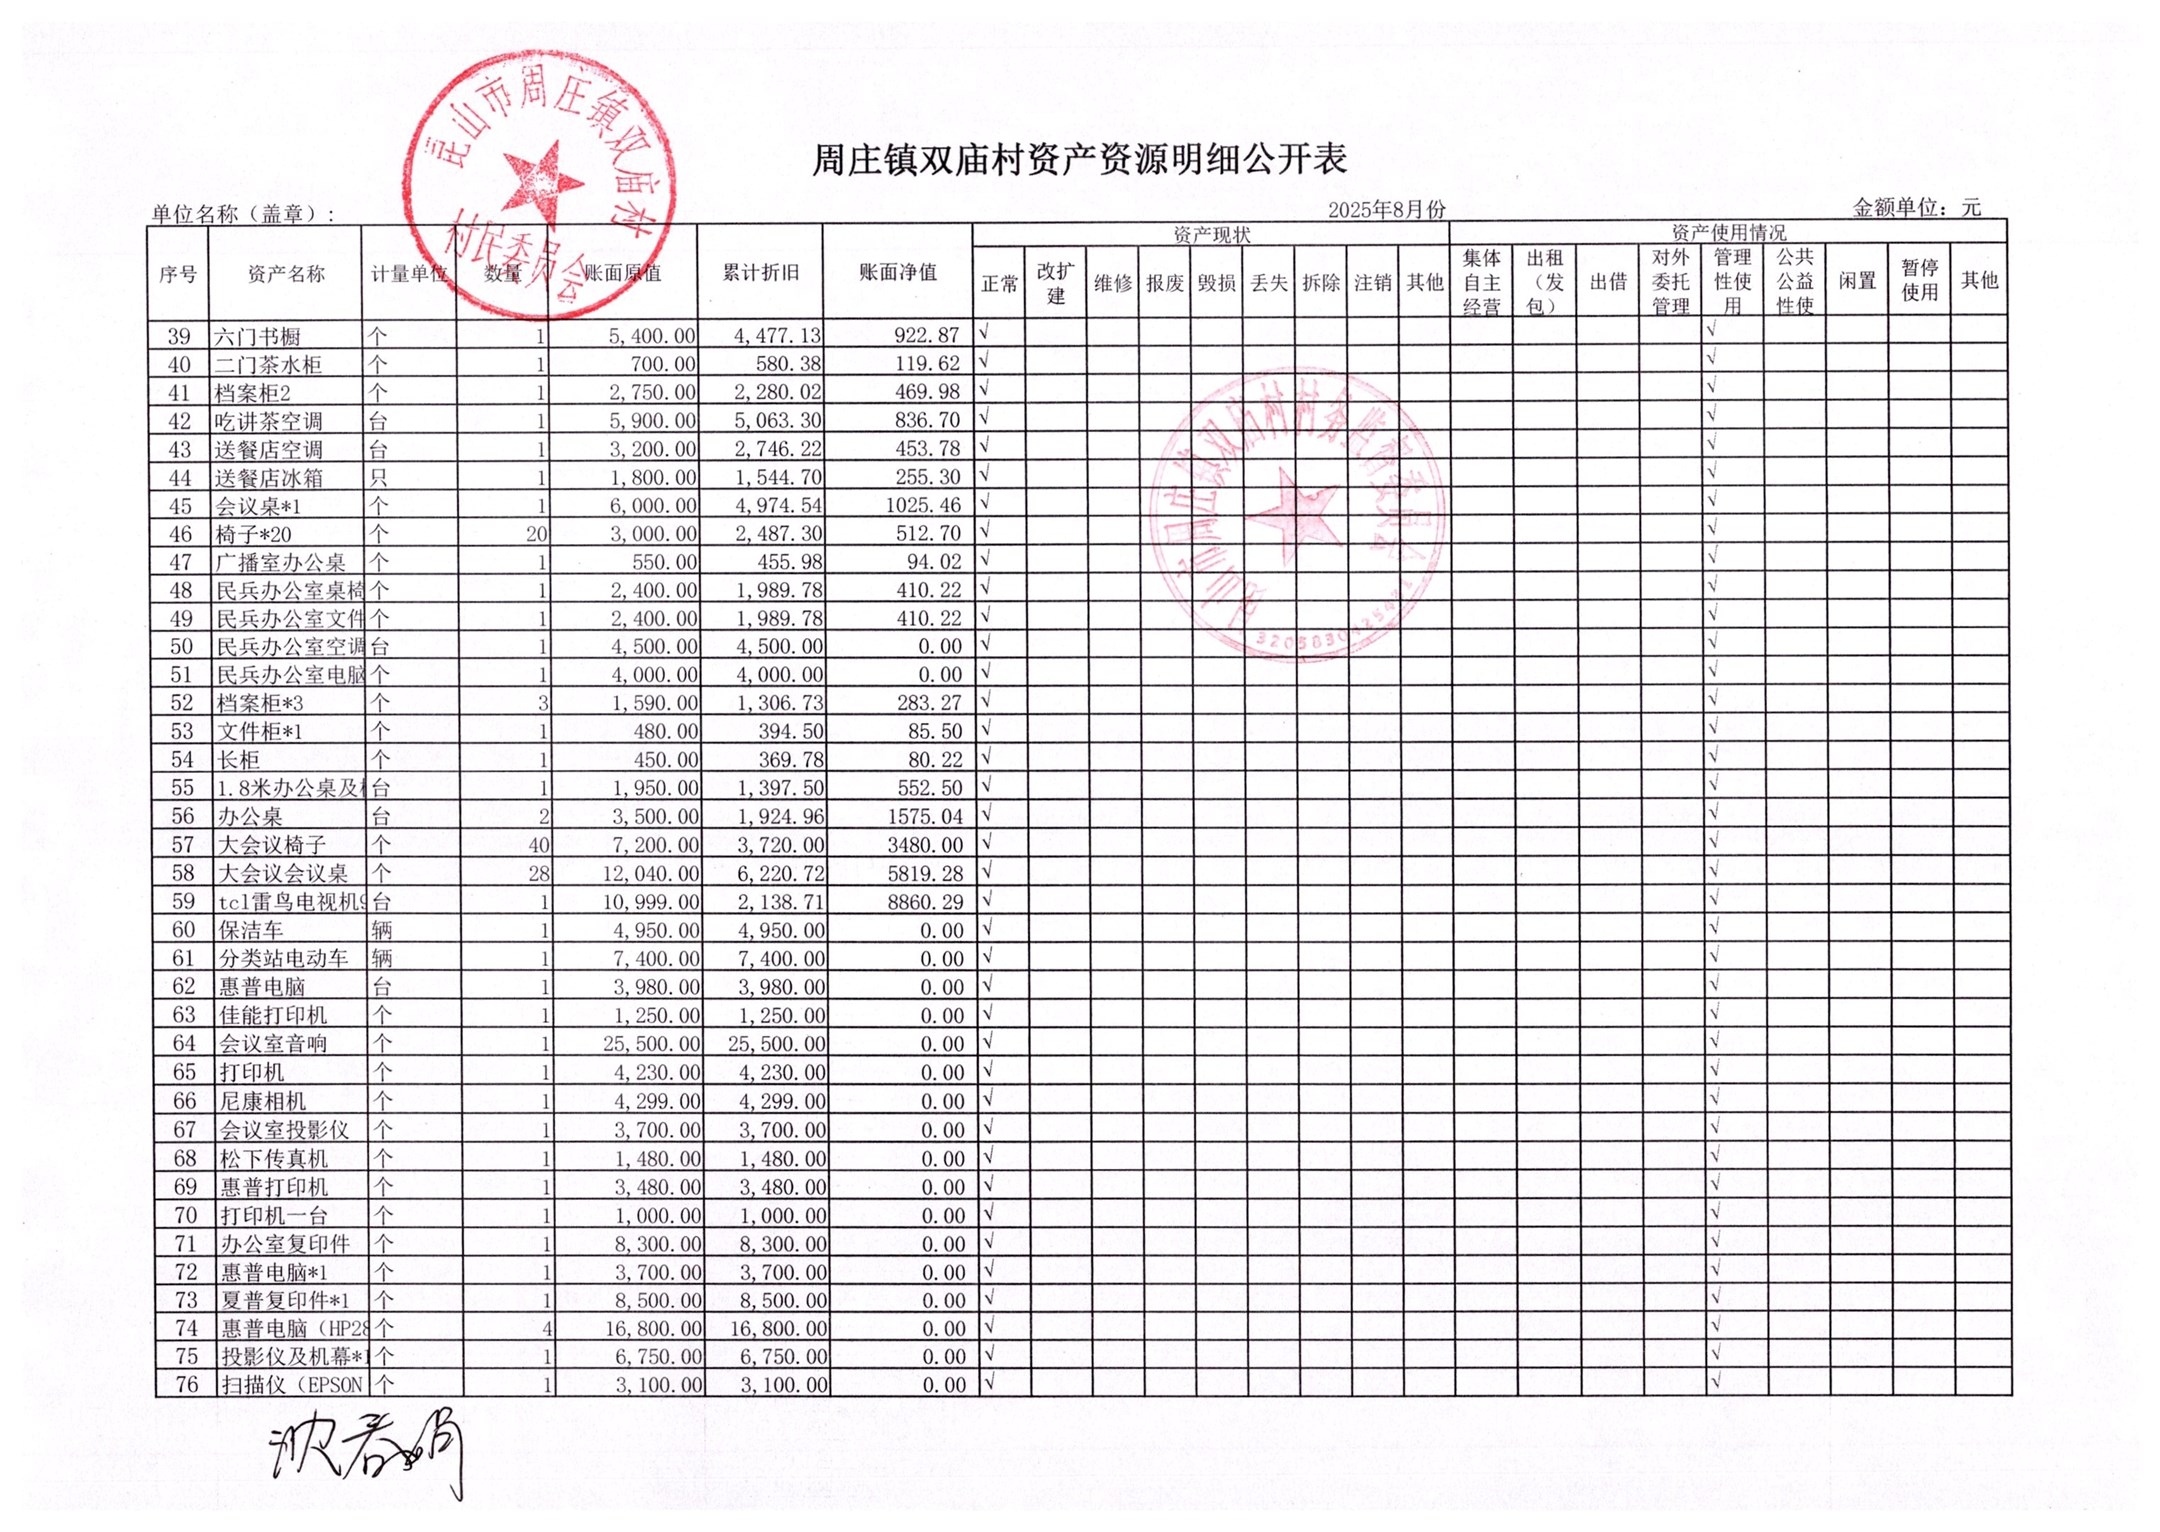 昆山市周庄镇双庙村
村民委员会
周庄镇双庙村资产资源明细公开表
单位名称（盖章）: 2025年8月份 金额单位：元
序号 资产名称 计量单位 数量 账面原值 累计折旧 账面净值 资产现状 资产使用情况
正常 改扩建 维修 报废 毁损 丢失 拆除 注销 其他 集体自主经营 出租（发包） 出借 对外委托管理 管理性使用 公共公益性使 闲置 暂停使用 其他
39 六门书橱 个 1 5,400.00 4,477.13 922.87 √ √
40 二门茶水柜 个 1 700.00 580.38 119.62 √ √
41 档案柜2 个 1 2,750.00 2,280.02 469.98 √ √
42 吃讲茶空调 台 1 5,900.00 5,063.30 836.70 √ √
43 送餐店空调 台 1 3,200.00 2,746.22 453.78 √ √
44 送餐店冰箱 只 1 1,800.00 1,544.70 255.30 √ √
45 会议桌*1 个 1 6,000.00 4,974.54 1025.46 √ √
46 椅子*20 个 20 3,000.00 2,487.30 512.70 √ √
47 广播室办公桌 个 1 550.00 455.98 94.02 √ √
48 民兵办公室桌椅 个 1 2,400.00 1,989.78 410.22 √ √
49 民兵办公室文件 个 1 2,400.00 1,989.78 410.22 √ √
50 民兵办公室空调 台 1 4,500.00 4,500.00 0.00 √ √
51 民兵办公室电脑 个 1 4,000.00 4,000.00 0.00 √ √
52 档案柜*3 个 3 1,590.00 1,306.73 283.27 √ √
53 文件柜*1 个 1 480.00 394.50 85.50 √ √
54 长柜 个 1 450.00 369.78 80.22 √ √
55 1.8米办公桌及 台 1 1,950.00 1,397.50 552.50 √ √
56 办公桌 台 2 3,500.00 1,924.96 1575.04 √ √
57 大会议椅子 个 40 7,200.00 3,720.00 3480.00 √ √
58 大会议会议桌 个 28 12,040.00 6,220.72 5819.28 √ √
59 tcl雷鸟电视机9 台 1 10,999.00 2,138.71 8860.29 √ √
60 保洁车 辆 1 4,950.00 4,950.00 0.00 √ √
61 分类站电动车 辆 1 7,400.00 7,400.00 0.00 √ √
62 惠普电脑 台 1 3,980.00 3,980.00 0.00 √ √
63 佳能打印机 个 1 1,250.00 1,250.00 0.00 √ √
64 会议室音响 个 1 25,500.00 25,500.00 0.00 √ √
65 打印机 个 1 4,230.00 4,230.00 0.00 √ √
66 尼康相机 个 1 4,299.00 4,299.00 0.00 √ √
67 会议室投影仪 个 1 3,700.00 3,700.00 0.00 √ √
68 松下传真机 个 1 1,480.00 1,480.00 0.00 √ √
69 惠普打印机 个 1 3,480.00 3,480.00 0.00 √ √
70 打印机一台 个 1 1,000.00 1,000.00 0.00 √ √
71 办公室复印件 个 1 8,300.00 8,300.00 0.00 √ √
72 惠普电脑*1 个 1 3,700.00 3,700.00 0.00 √ √
73 夏普复印件*1 个 1 8,500.00 8,500.00 0.00 √ √
74 惠普电脑（HP28 个 4 16,800.00 16,800.00 0.00 √ √
75 投影仪及机幕*1 个 1 6,750.00 6,750.00 0.00 √ √
76 扫描仪（EPSON 个 1 3,100.00 3,100.00 0.00 √ √
昆山市周庄镇双庙村村务监督委员会
沈春娟